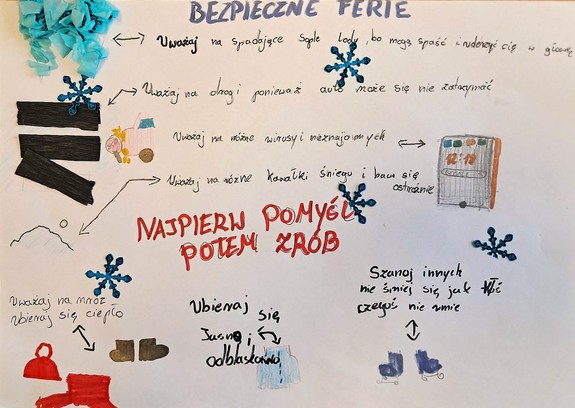 BEZPIECZNE FERIE
Uważaj na spadające sople lodu, bo mogą spaść i uderzyć cię w głowę
Uważaj na drogi ponieważ auto może się nie zatrzymać
Uważaj na różne wirusy i nieznajomych
Uważaj na różne kawałki śniegu i baw się
ostrożnie
NAJPIERW POMYŚL
POTEM ZRÓB
Uważaj na mróz
ubieraj się ciepło
Ubieraj się
Jasno i
odblaskowo
Szanuj innych
nie śmiej się jak ktoś
czegoś nie umie